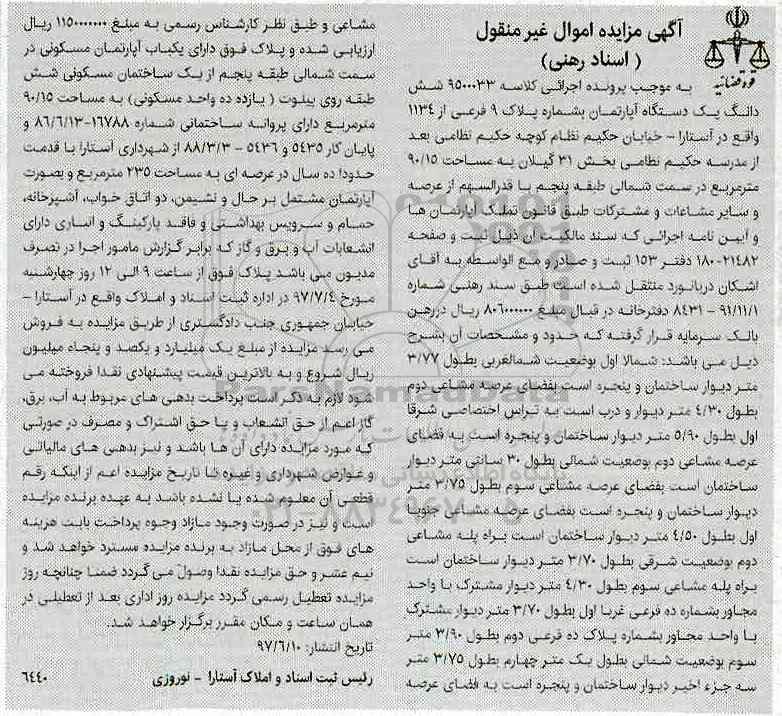 آگهی مزایده اموال غیر منقول
( اسناد رهنی)
قوه قضائیه
به موجب پرونده اجرائی کلاسه ۹۵۰۰۰۳۳ شش
دانگ یک دستگاه آپارتمان بشماره پلاک ۹ فرعی از ۱۱۳۴
واقع در آستارا - خیابان حکیم نظام کوچه حکیم نظامی بعد
از مدرسه حکیم نظامی بخش ۳۱ گیلان به مساحت ۹۰/۱۵
مترمربع در سمت شمالی طبقه پنجم با قدرالسهم از عرصه
و سایر مشاعات و مشترکات طبق قانون تملک آپارتمان ها
و آیین نامه اجرائی که سند مالکیت آن ذیل ثبت و صفحه
۲۱۴۸۲-۱۸۰ دفتر ۱۵۳ ثبت و صادر و مع الواسطه به آقای
اشکان دریانورد منتقل شده است طبق سند رهنی شماره
۹۱/۱۱/۱ - ۸۴۳۱ دفترخانه در قبال مبلغ ۸۰۶۰۰۰۰۰۰ ریال دررهن
بانک سرمایه قرار گرفته که حدود و مشخصات آن بشرح
ذیل می باشد: شمالا اول بوضعیت شمالغربی بطول ۳/۷۷
متر دیوار ساختمان و پنجره است بفضای عرصه مشاعی دوم
بطول ۴/۳۰ متر دیوار و درب است به تراس اختصاصی شرقا
اول بطول ۵/۹۰ متر دیوار ساختمان و پنجره است به فضای
عرصه مشاعی دوم بوضعیت شمالی بطول ۳۰ سانتی متر دیوار
ساختمان است بفضای عرصه مشاعی سوم بطول ۳/۷۵ متر
دیوار ساختمان و پنجره است بفضای عرصه مشاعی جنوبا
اول بطول ۴/۵۰ متر دیوار ساختمان است براه پله مشاعی
دوم بوضعیت شرقی بطول ۳/۷۰ متر دیوار ساختمان است
براه پله مشاعی سوم بطول ۴/۳۰ متر دیوار مشترک با واحد
مجاور بشماره ده فرعی غربا اول بطول ۳/۷۰ متر دیوار مشترک
با واحد مجاور بشماره پلاک ده فرعی دوم بطول ۳/۹۰ متر
سوم بوضعیت شمالی بطول یک متر چهارم بطول ۳/۷۵ متر
سه جزء اخیر دیوار ساختمان و پنجره است به فضای عرصه
مشاعی و طبق نظر کارشناس رسمی به مبلغ ۱۱۵۰۰۰۰۰۰۰ ریال
ارزیابی شده و پلاک فوق دارای یکباب آپارتمان مسکونی در
سمت شمالی طبقه پنجم از یک ساختمان مسکونی شش
طبقه روی پیلوت ( یازده ده واحد مسکونی) به مساحت ۹۰/۱۵
مترمربع دارای پروانه ساختمانی شماره ۱۶۷۸۸-۸۶/۶/۱۳ و
پایان کار ۵۴۳۵ و ۵۴۳۶ - ۸۸/۳/۳ از شهرداری آستارا با قدمت
حدودا ده سال در عرصه ای به مساحت ۲۳۵ مترمربع و بصورت
آپارتمان مشتمل بر حال و نشیمن، دو اتاق خواب، آشپزخانه،
حمام و سرویس بهداشتی و فاقد پارکینگ و انباری دارای
انشعابات آب و برق و گاز که برابر گزارش مامور اجرا در تصرف
مدیون می باشد پلاک فوق از ساعت ۹ الی ۱۲ روز چهارشنبه
مورخ ۹۷/۷/۴ در اداره ثبت اسناد و املاک واقع در آستارا -
خیابان جمهوری جنب دادگستری از طریق مزایده به فروش
می رسد مزایده از مبلغ یک میلیارد و یکصد و پنجاه میلیون
ریال شروع و به بالاترین قیمت پیشنهادی نقدا فروخته می
شود لازم به ذکر است پرداخت بدهی های مربوط به آب، برق،
گاز اعم از حق انشعاب و یا حق اشتراک و مصرف در صورتی
که مورد مزایده دارای آن ها باشد و نیز بدهی های مالیاتی
و عوارض شهرداری و غیره تا تاریخ مزایده اعم از اینکه رقم
قطعی آن معلوم شده یا نشده باشد به عهده برنده مزایده
است و نیز در صورت وجود مازاد وجوه پرداخت بابت هزینه
های فوق از محل مازاد به برنده مزایده مسترد خواهد شد و
نیم عشر و حق مزایده نقدا وصول می گردد ضمنا چنانچه روز
مزایده تعطیل رسمی گردد مزایده روز اداری بعد از تعطیلی در
همان ساعت و مکان مقرر برگزار خواهد شد.
تاریخ انتشار: ۹۷/۶/۱۰
رئیس ثبت اسناد و املاک آستارا - نوروزی
۶۴۴۰
ParsNamadData